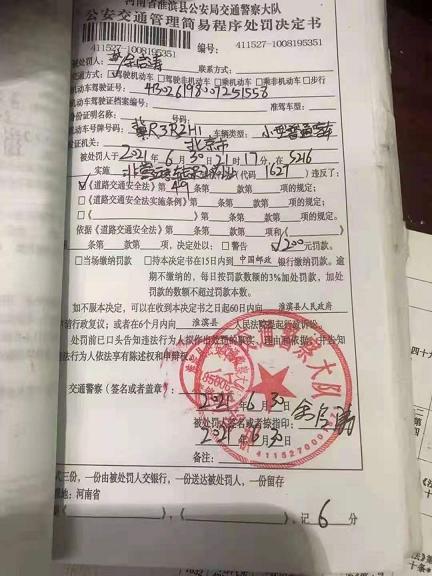 河南省淮滨县公安局交通警察大队
公安交通管理简易程序处罚决定书
411527-1008195351 编号: 411527-1008195351
被处罚人: 联系方式:
交通方式: 驾驶机动车 □驾驶非机动车 □乘机动车 □乘非机动车 □步行
机动车驾驶证号: 413026198007251558
机动车驾驶证档案编号: 准驾车型:
身份证明名称: 号码:
机动车号牌号码: 冀R3R2H1 车辆类型: 小型普通客车
发证机关: 北京市
被处罚人于 2021 年 6 月 30 日 21 时 17 分, 在 S216
实施 代码 1627 )违反了:
☑《道路交通安全法》第 49 条第 款第 项的规定;
□《道路交通安全法实施条例》第 条第 款第 项的规定;
□《 》第 条第 款第 项的规定。
依据《道路交通安全法》第 条第 款第 项和《 》
第 条第 款第 项, 决定处以: □警告 ☑ 200 元罚款。
□当场缴纳罚款 □持本决定书在15日内到 中国邮政 银行缴纳罚款。逾
期不缴纳的, 每日按罚款数额的3%加处罚款, 加处
罚款的数额不超过罚款本数。
如不服本决定, 可以在收到本决定书之日起60日内向 淮滨县人民政府
申请行政复议; 或者在6个月内向 淮滨县 人民法院提起行政诉讼。
处罚前已口头告知违法行为人拟作出处罚的事实、理由和依据, 并告知
违法行为人依法享有陈述权和申辩权。
交通警察 (签名或者盖章):
2021 年 6 月 30 日
被处罚人签名或者捺指印:
2021 年 6 月 30 日
备注:
式三份, 一份由被处罚人交银行, 一份送达被处罚人, 一份留存
地: 河南省
《 》, 《 》, 记 6 分
交通警察大队
411527000